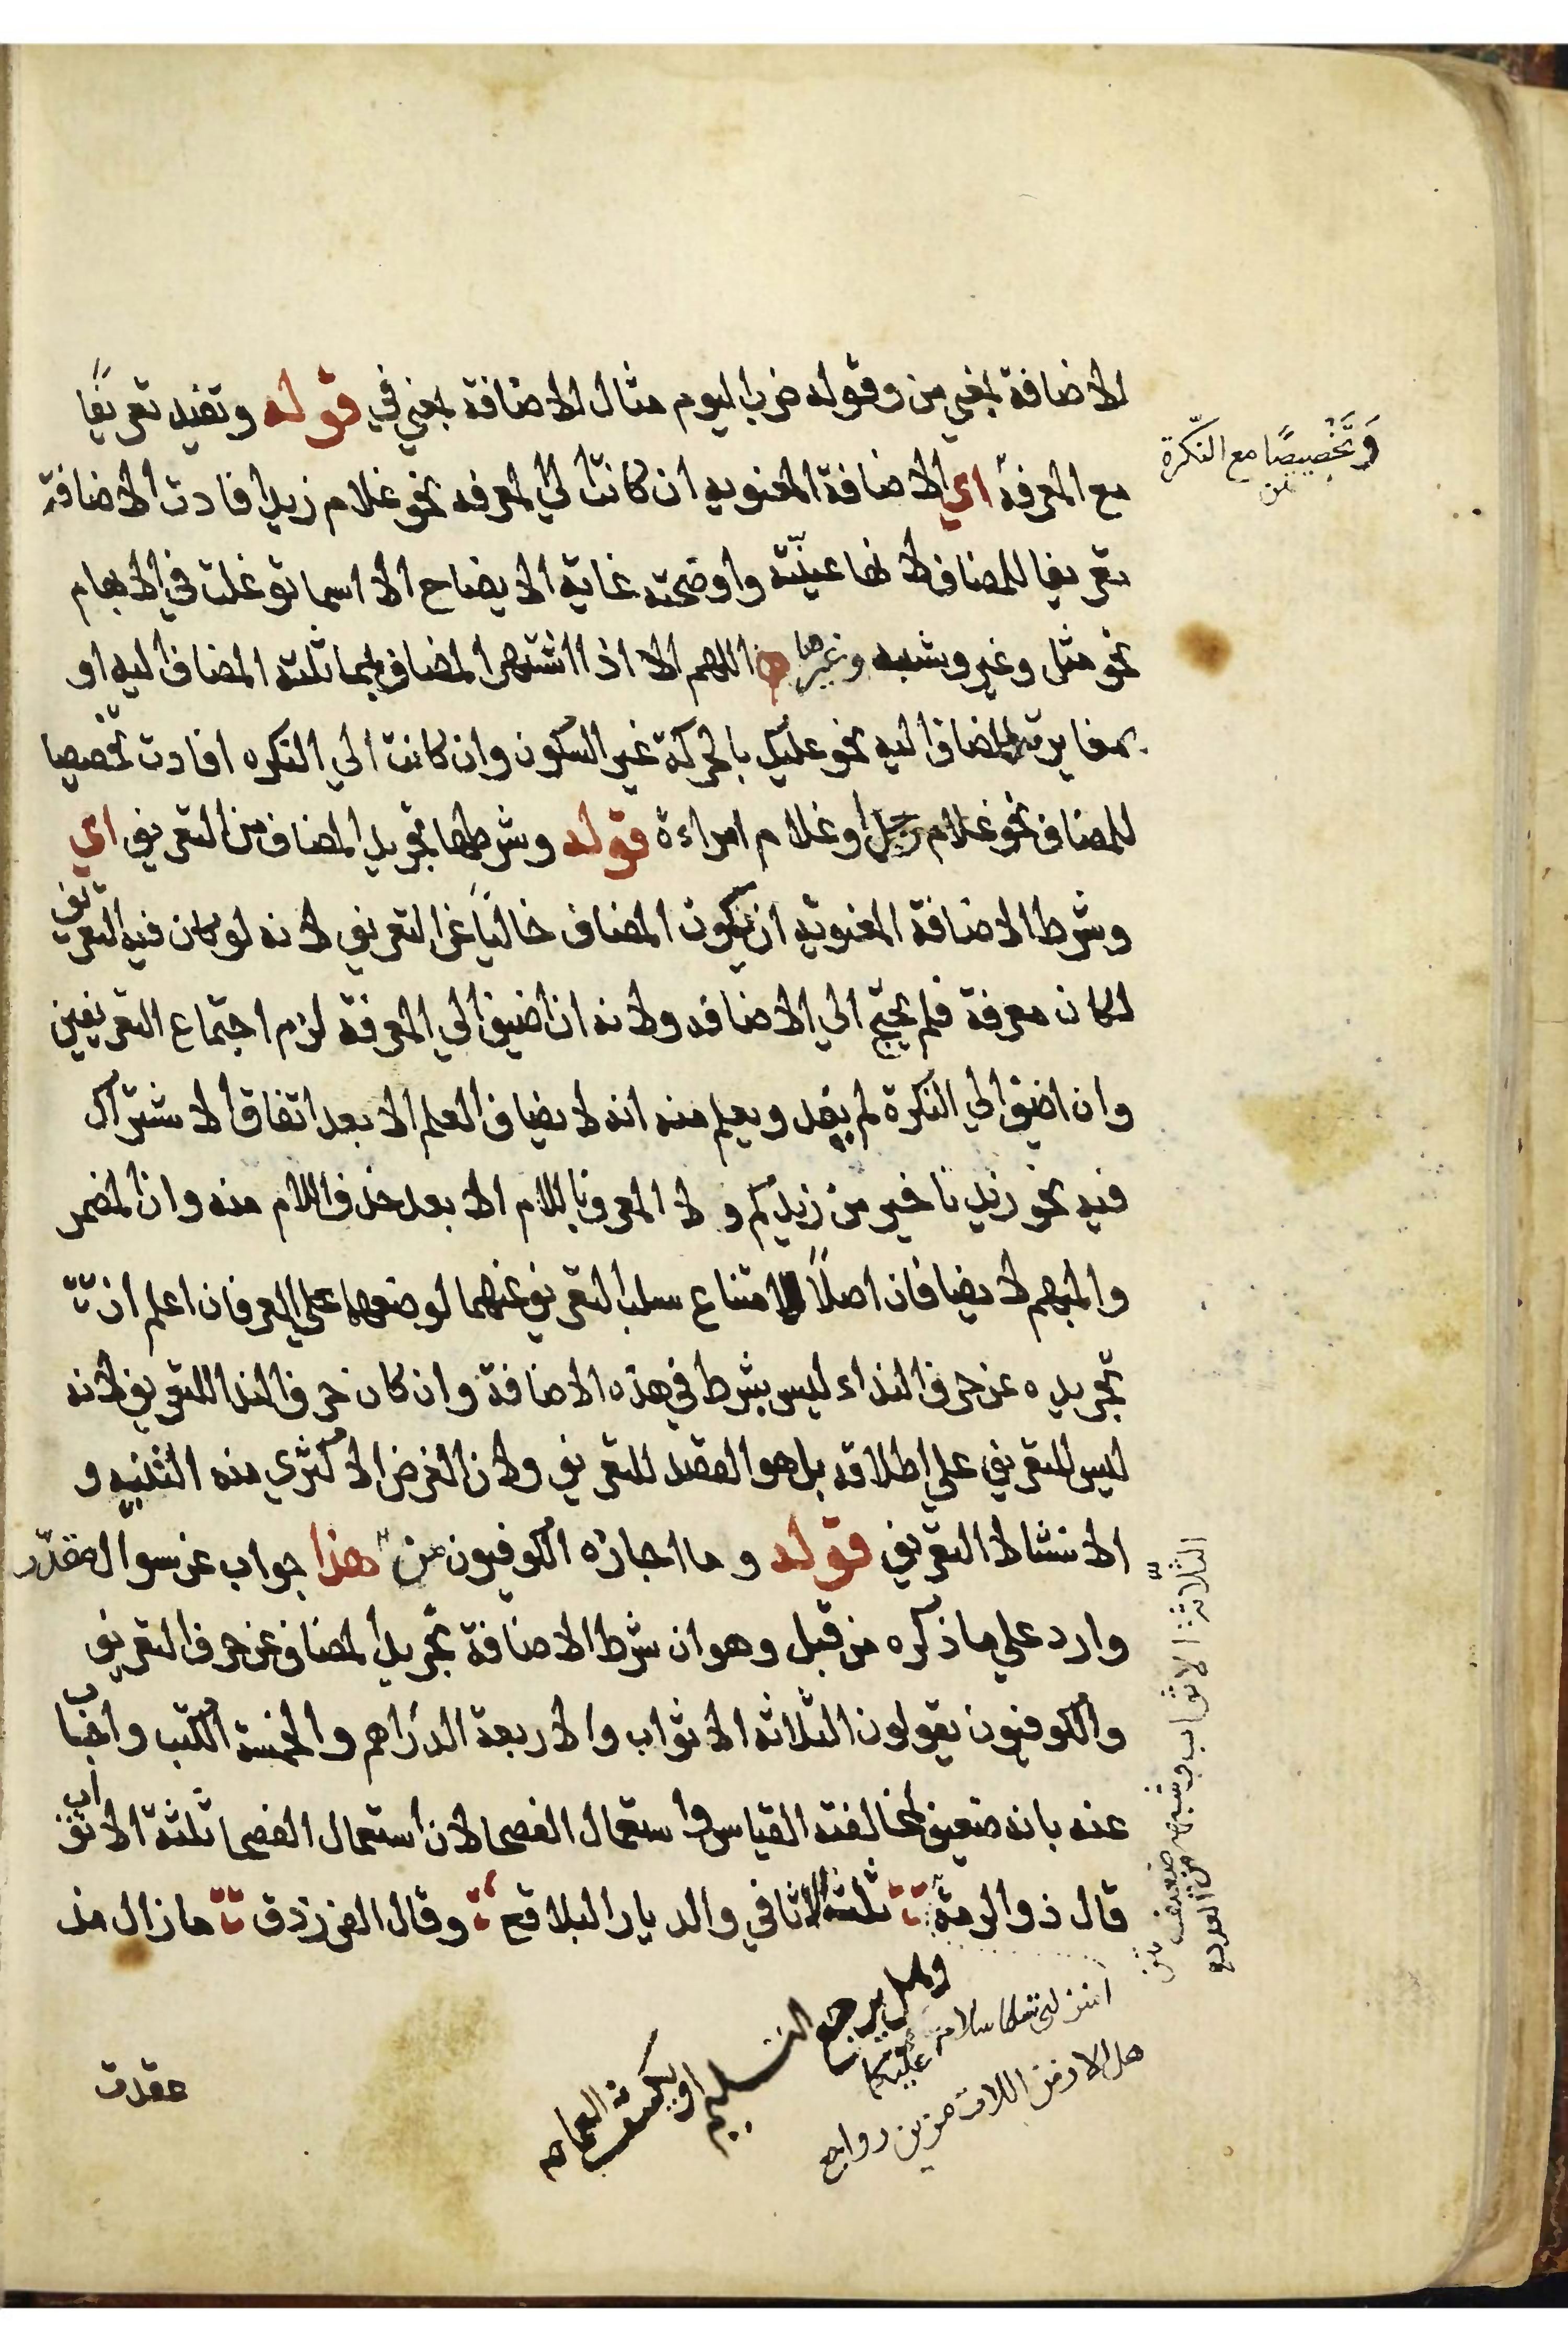 الاضافة بمعني من وقوله ضرب اليوم مثال الاضافة بمعني في قوله وتفيد تعريفًا
مع المعرفة اي الاضافة المعنويه ان كانت الي المعرفه نحو غلام زيد افادت الاضافة
تعريفا للمضاف لانها عينّته واوضحته غاية الايضاح الا اسما توغلت في الابهام
نحو مثل وغير وشبه وغيرها اللهم الا اذا اشتهر المضاف بمماثلته المضاف اليه او
بمغايرته المضاف اليه نحو عليك بالحركة غير السكون وان كانت الي النكره افادت تخصيصا
للمضاف نحو غلام رجل او غلام امراءة قوله وشرطها تجريد المضاف من التعريف اي
وشرط الاضافة المعنويه ان يكون المضاف خاليًا عن التعريف لانه لو كان فيه التعريف
لكان معرفة فلم يحتج الي الاضافه ولانه ان اضيف الي المعرفة لزم اجتماع التعريفين
وان اضيف الي النكرة لم يفد ويعلم منه انه لا يضاف العلم الا بعد اتفاق الاشتراك
فيه نحو زيدنا خير من زيدكم ولا المعرف باللام الا بعد حذف اللام منه وان المضمر
والمبهم لا يضافان اصلًا لامتناع سلب التعريف عنهما لوضعهما علي العرفان اعلم ان
تجريده عن حرف النداء ليس بشرط في هذه الاضافة وان كان حرف الندا للتعريف لانه
ليس للتعريف علي اطلاقه بل هو القصد للتعريف ولان الغرض الاكثري منه التنبيه و
الانشاط التعريف قوله وما اجازه الكوفيون من هذا جواب عن سوال مقدّر
وارد علي ما ذكره من قبل وهو ان شرط الاضافة تجريد المضاف عن حرف التعريف
والكوفيون يقولون الثلاثه الاثواب والاربعة الدراهم والخمسة الكتب واجاب
عنه بانه ضعيف لمخالفته القياس واستعمال الفصحا لان استعمال الفصحا ثلثة الاثواب
قال ذو الرمة ثلثة الاثافي والديار البلاقع وقال الفرزدق ما زال مذ
عقدت
وَتَخْصِيصًا مع النّكرة
من
الثلاثة الاثواب وشبهه ضعيف
من العدد
وهل يرجع التسليم او يكشف العما
أمنزلتي سلامي عليكما
هل الازمن اللات مضين رواجع